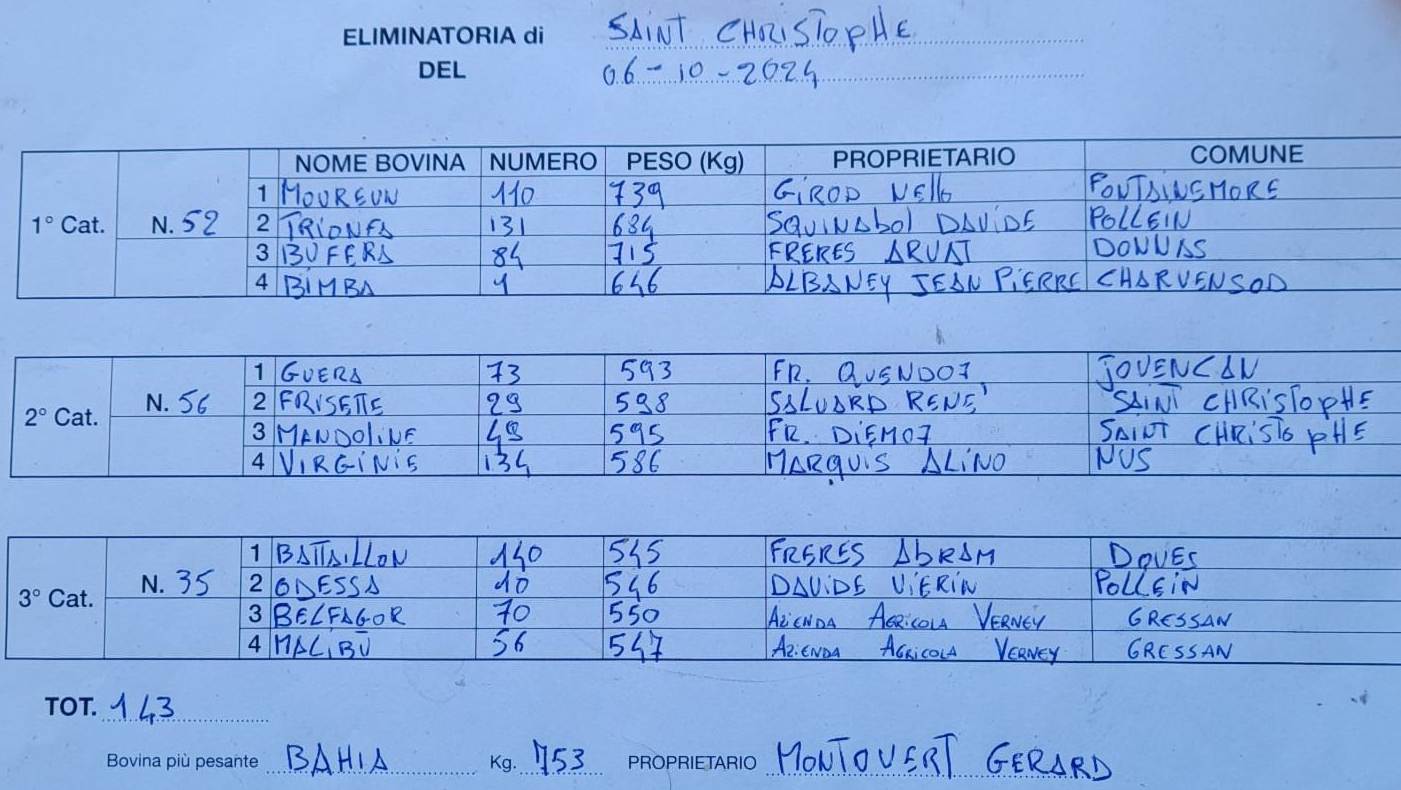 ELIMINATORIA di SAINT CHRISTOPHE
DEL 06-10-2024
NOME BOVINA NUMERO PESO (Kg) PROPRIETARIO COMUNE
1° Cat. N. 52
1 MOUREUN 110 739 GIROD NELLO PONTAINEMORE
2 TRIONFA 131 684 SQUINABOL DAVIDE POLLEIN
3 BUFERA 84 715 FRERES ARVAT DONNAS
4 BIMBA 1 646 ALBANEY JEAN PIERRE CHARVENSOD
2° Cat. N. 56
1 GUERA 73 593 FR. QUENDOZ JOVENCAN
2 FRISETTE 29 598 SALUARD RENE' SAINT CHRISTOPHE
3 MANDOLINE 49 595 FR. DIEMOZ SAINT CHRISTOPHE
4 VIRGINIE 134 586 MARQUIS ALINO NUS
3° Cat. N. 35
1 BATTAILLON 140 545 FRERES ABRAM DOUES
2 ODESSA 10 546 DAVIDE VIERIN POLLEIN
3 BELFAGOR 70 550 AZIENDA AGRICOLA VERNEY GRESSAN
4 MALIBÙ 56 547 AZIENDA AGRICOLA VERNEY GRESSAN
TOT. 143
Bovina più pesante BAHIA Kg. 753 PROPRIETARIO MONTOVERT GERARD